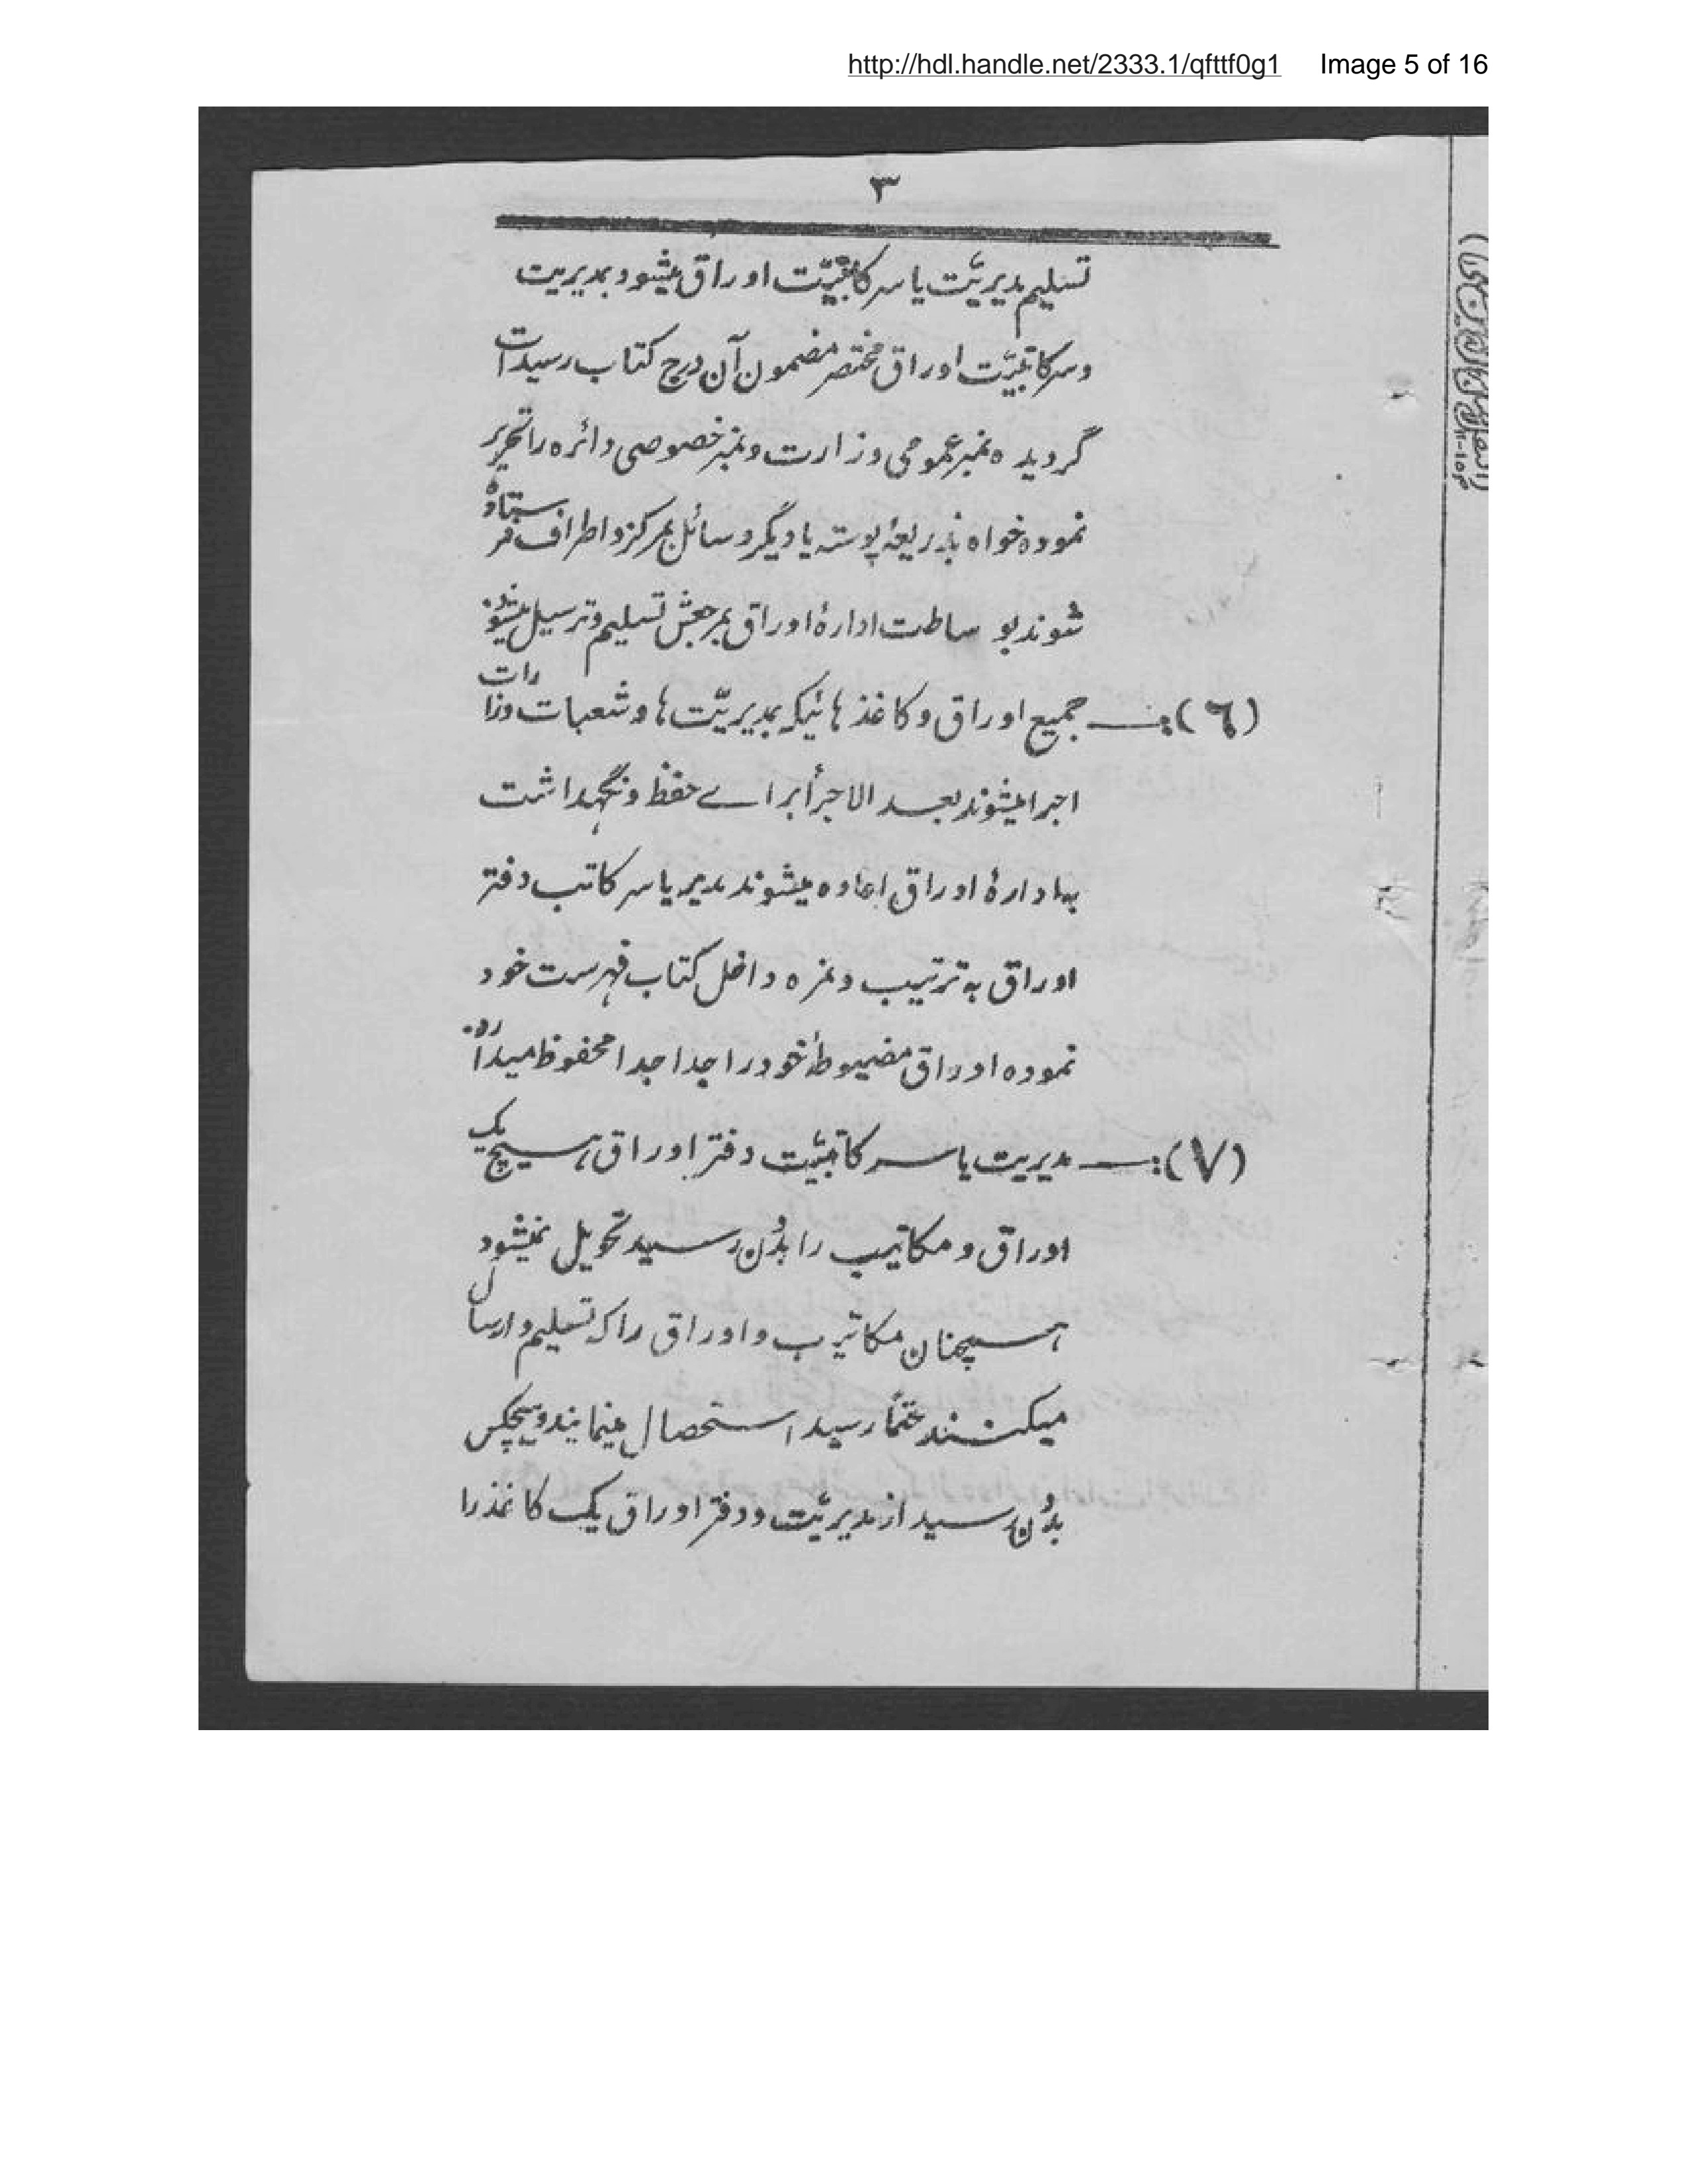 http://hdl.handle.net/2333.1/qfttf0g1 Image 5 of 16
۳
تسلیم مدیریّت یا سرکاتبیّت اوراق میشود بمدیریت
و سرکاتبیّت اوراق مختصر مضمون آن درج کتاب رسیدات
گردیده نمبر عمومی وزارت و نمبر خصوصی دائره را تحریر
نموده خواه بذریعۀ پوسته یا دیگر وسائل بمرکز و اطراف فرستاده
شوند بو ساطت ادارۀ اوراق بمرجعش تسلیم و ترسیل میشوند
(٦) :— جمیع اوراق و کاغذ هائیکه بمدیریّت ها و شعبات وزارات
اجرا میشوند بعد الاجرأ برای حفظ و نگهداشت
به ادارۀ اوراق اعاده میشوند مدیر یا سر کاتب دفتر
اوراق به ترتیب و نمره داخل کتاب فهرست خود
نموده اوراق مضبوطۀ خود را جدا جدا محفوظ میدارد.
(٧) :— مدیریت یا سرکاتبیّت دفتر اوراق هیچ یک
اوراق و مکاتیب را بدُن رسید تحویل نمیشود
همچنان مکاتیب و اوراق را که تسلیم و ارسال
میکنند حتماً رسید استحصال مینمایند و هیچکس
بدُن رسید از مدیریّت و دفتر اوراق یک کاغذ را